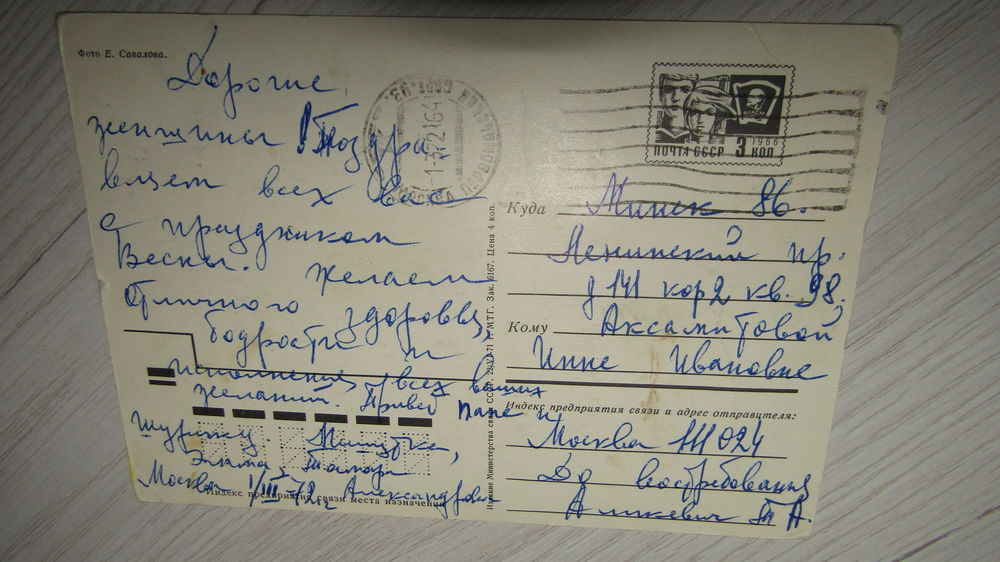 Фото Е. Савалова.
Дорогие
женщины! Поздра
вляем всех вас
с праздником
Весны. Желаем
Отличного здоровья,
бодрости и
исполнения всех ваших
желаний. Привет папе и
Шурику. Мишутка,
Тамара
Москва 1/III-72 г. Александровна
Индекс предприятия связи места назначения
МОСКВА
ПОЧТА СССР 3 КОП
1966
Издание Министерства связи СССР. 22/VI-71 г. МТГ. Зак. 6167. Цена 4 коп.
Куда Минск 86.
Ленинский пр.
д 141 кор 2 кв. 98.
Кому Аксамитовой
Инне Ивановне
Индекс предприятия связи и адрес отправителя:
Москва 111024
До востребования
Т А.